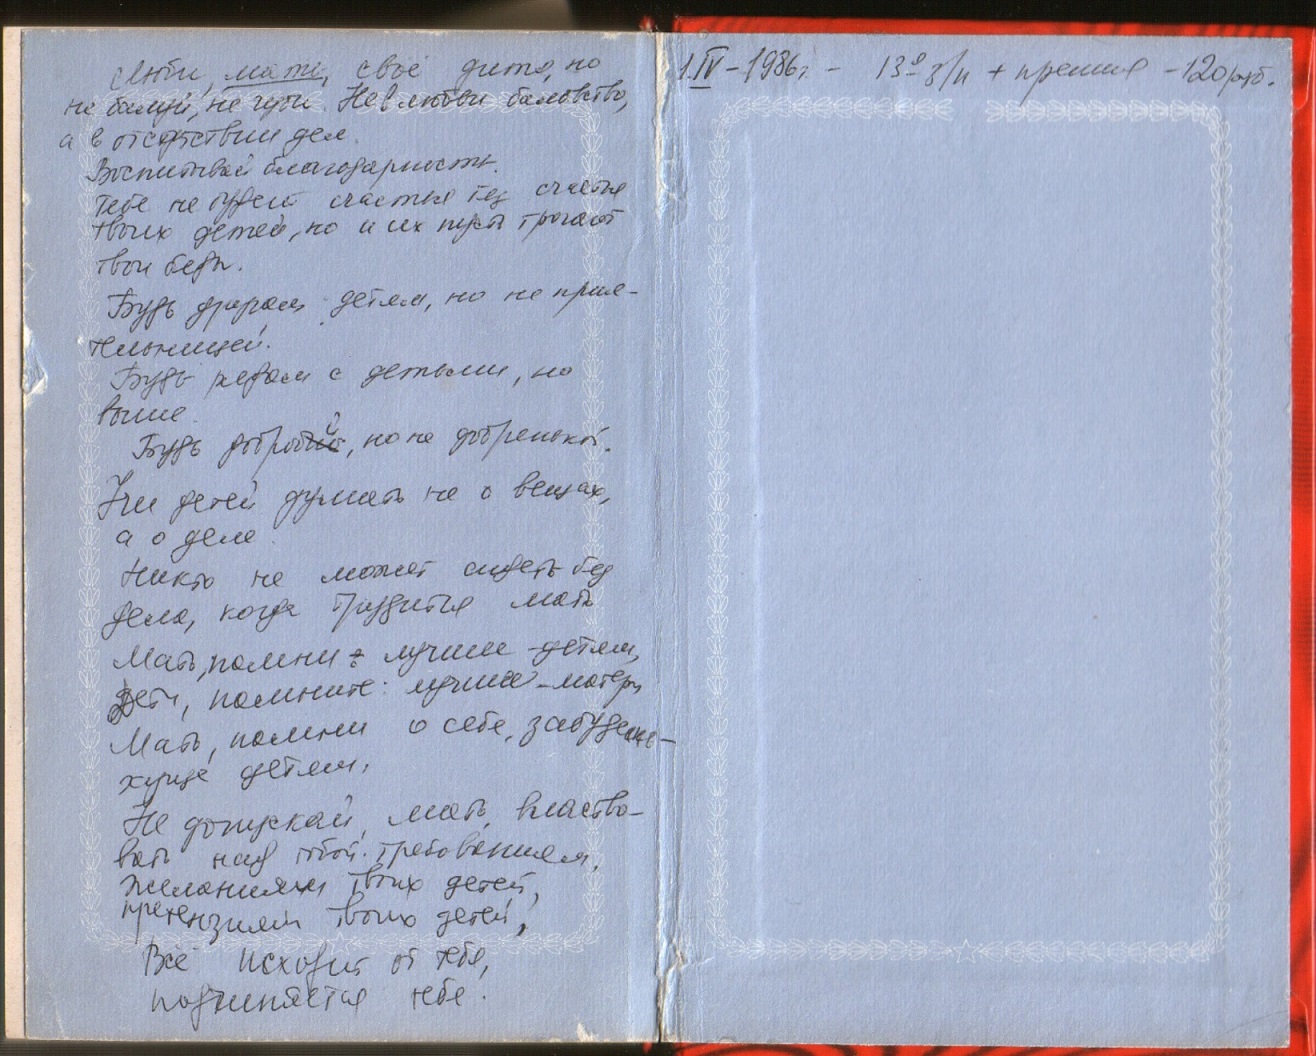 Люби, мать, своё дитя, но
не балуй, не губи. Не в любви баловство,
а в отсутствии дел.
Воспитывай благодарность.
Тебе не будет счастья без счастья
твоих детей, но и их пусть трогают
твои беды.
Будь другом детям, но не прия-
тельницей.
Будь рядом с детьми, но
выше.
Будь доброй, но не добренькой.
Учи детей думать не о вещах,
а о деле.
Никто не может сидеть без
дела, когда трудится мать
Мать, помни: лучшее - детям,
Дети, помните: лучшее - матери
Мать, помни о себе, забудешь -
хуже детям.
Не допускай, мать, властво-
вать над тобой требованиям,
желаниям твоих детей,
претензиям твоих детей,
Всё исходит от тебя,
подчиняется тебе.
1.IV - 1986г. - 13º з/п + премия - 120 руб.